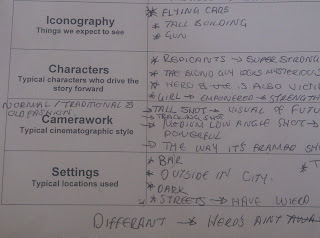 Iconography
Things we expect to see
* FLYING CARS
* TALL BUILDING
* GUN
Characters
Typical characters who drive the
story forward
* REPLICANTS → SUPER STRONG
* THE BLOND GUY LOOKS MYSTERIOUS
* HERO IS ALSO VICTI
* GIRL → EMPOWERED → STRENGTH
NORMAL / TRADITIONAL &
OLD FASHION
Camerawork
Typical cinematographic style
→ TALL SHOT → VISUAL OF FUTU
→ TRACKING SHOT
→ MEDIUM LOW ANGLE SHOT →
POWERFUL
→ THE WAY IT'S FRAMED SHO
Settings
Typical locations used
* BAR
* T
* OUTSIDE IN CITY.
* DARK
* STREETS → HAVE WIERD
DIFFERANT → HERO'S AIN'T